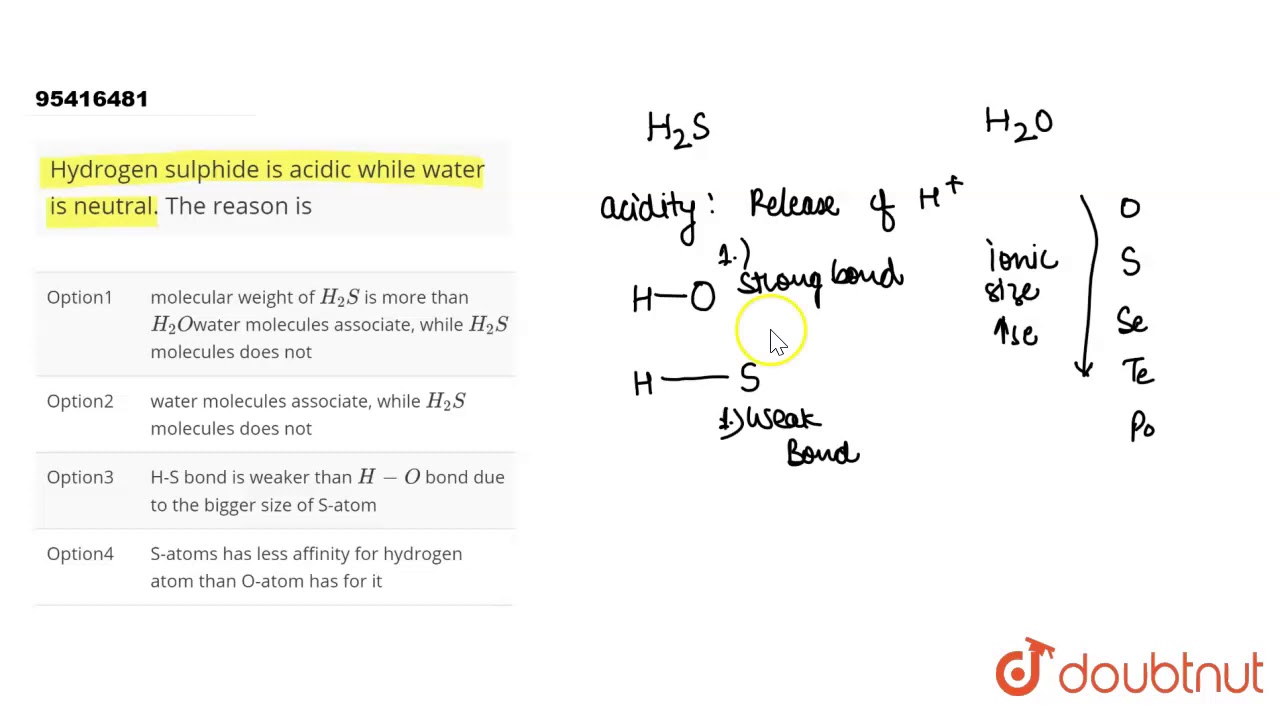 95416481
Hydrogen sulphide is acidic while water
is neutral. The reason is
Option1 molecular weight of H₂S is more than
H₂Owater molecules associate, while H₂S
molecules does not
Option2 water molecules associate, while H₂S
molecules does not
Option3 H-S bond is weaker than H − O bond due
to the bigger size of S-atom
Option4 S-atoms has less affinity for hydrogen
atom than O-atom has for it
H₂S H₂O
acidity: Release of H⁺
1.) strong bond
H—O
H—S
1.) Weak
Bond
ionic
size
↑se
O
S
Se
Te
Po
doubtnut